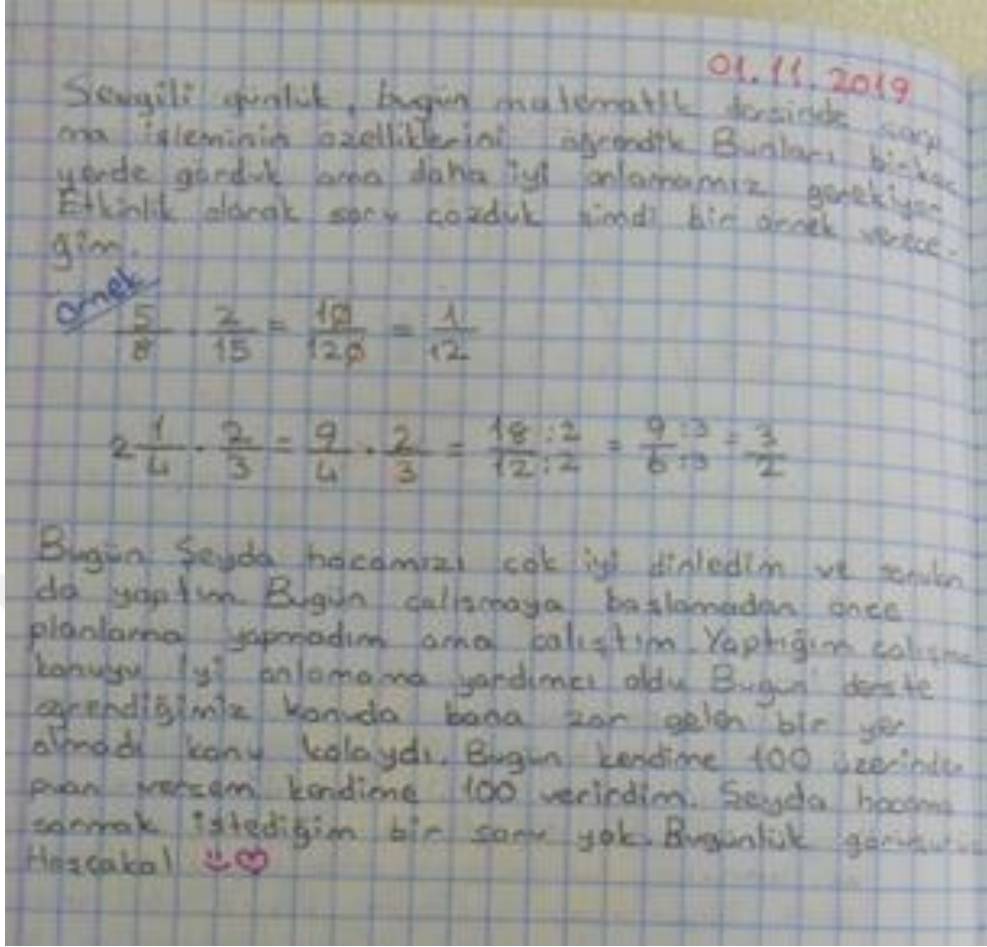 01.11.2019
Sevgili günlük, bugün matematik dersinde çarp
ma işleminin özelliklerini öğrendik Bunları birkaç
yerde gördük ama daha iyi anlamamız gerekiyor
Etkinlik olarak soru çözdük şimdi bir örnek verece-
ğim.
örnek
5/8 · 2/15 = 10/120 = 1/12
2 1/4 · 2/3 = 9/4 · 2/3 = 18:2/12:2 = 9:3/6:3 = 3/2
Bugün Şeyda hocamızı çok iyi dinledim ve
da yaptım. Bugün çalışmaya başlamadan önce
planlama yapmadım ama çalıştım. Yaptığım çalışma
konuyu iyi anlamama yardımcı oldu Bugün derste
öğrendiğimiz konuda bana zor gelen bir yer
olmadı konu kolaydı. Bugün kendime 100 üzerinden
puan versem kendime 100 verirdim. Şeyda hocama
sormak istediğim bir soru yok. Bugünlük görüşürüz
Hoşçakal